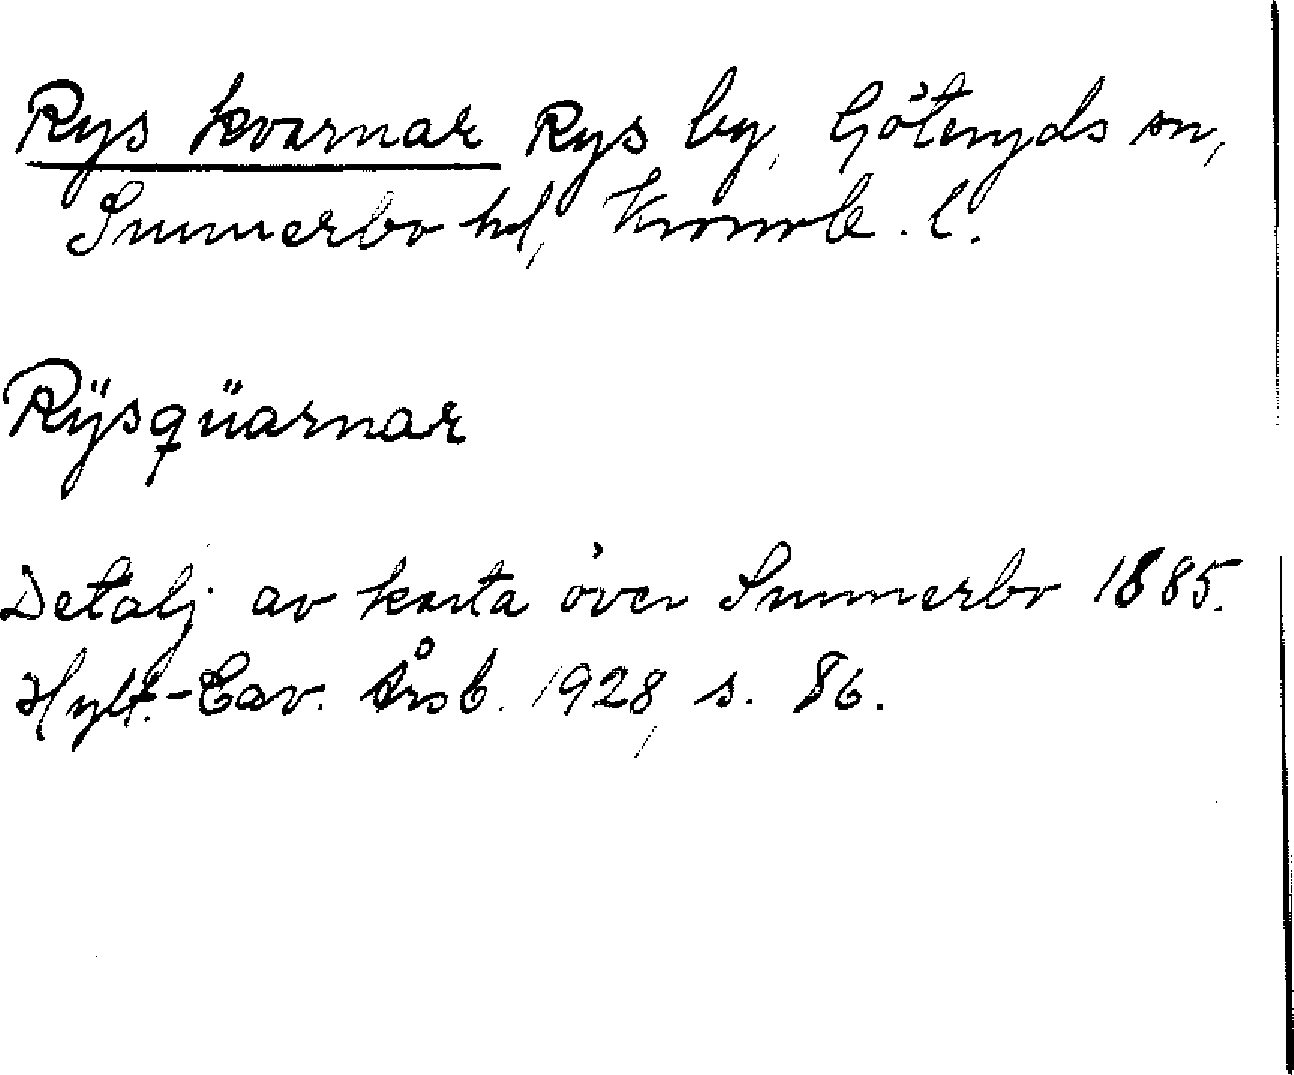 Rys kvarnar Rys by, Göteryds sn,
Sunnerbo hd, Kronob. l.
Rÿsqüarnar
Detalj av karta över Sunnerbo 1885.
Hylt.-Cav. Årsb. 1928, s. 86.